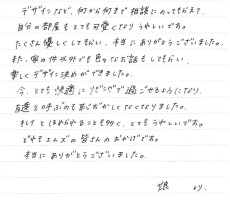 デザインなど、何から何まで相談にのってもらえて、
自分の部屋もとても可愛くなりうれしいです。
たくさん優しくしてもらい、本当にありがとうございました。
また、家の件以外でも色々なお話もしてもらい、
楽しくデザイン決めができました。
今、とても快適にリビングで過ごせるようになり、
友達を呼ぶのも恥ずかしくなくなりました。
そしてほめられることも多く、とてもうれしいです。
どれもエムズの皆さんのおかげです。
本当にありがとうございました。
娘 より。